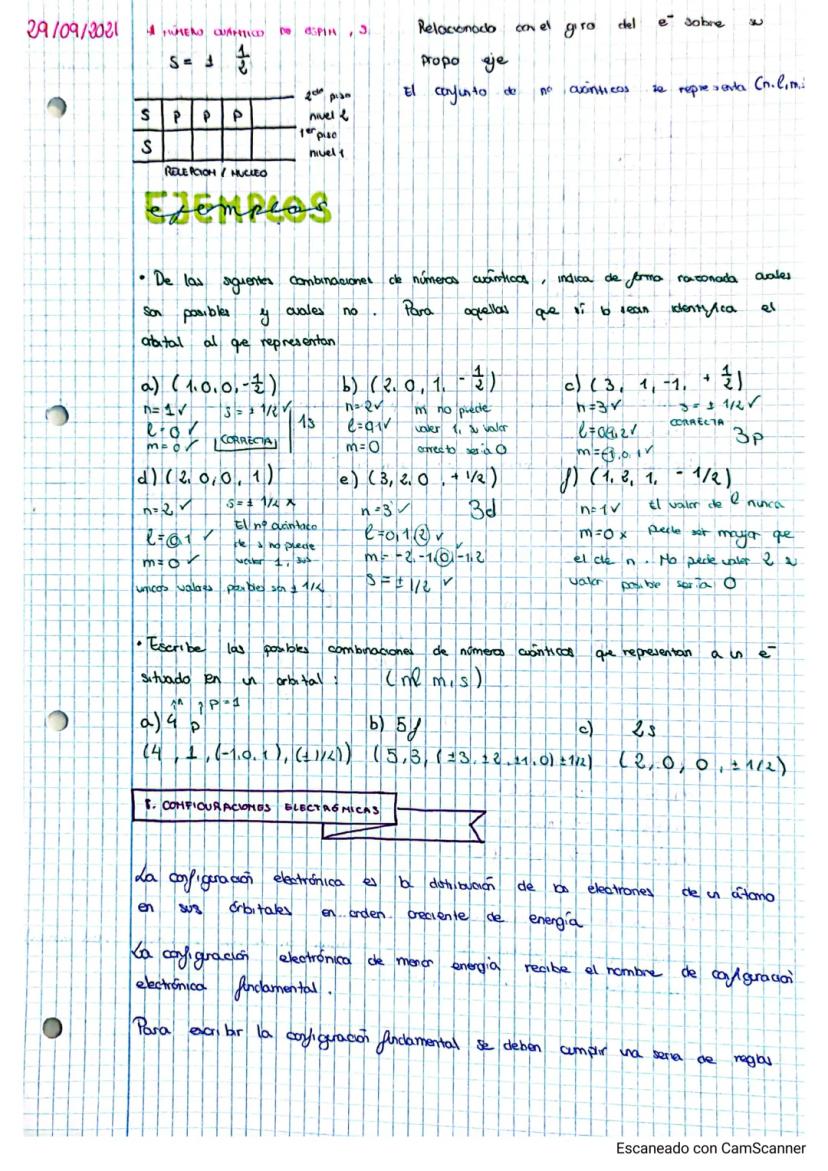 29/09/2021
NÚMERO CUÁNTICO DE ESPIN, S.
Relacionado con el giro del e⁻ sobre su
S = ± 1/2
propo eje
El conjunto de nº cuánticos se representa (n.l,m.
2do piso
S P P P nivel 2
1er piso
S nivel 1
/ NUCLEO
EJEMPLOS
ejemplos
• De las siguentes combinaciones de números cuánticos, indica de forma razonada cuales
son posibles y cuales no. Para aquellas que sí lo sean identifica el
orbital al que representan
a) (1.0.0,-1/2) b) (2.0,1. -1/2) c) (3, 1,-1. +1/2)
n=1✓ s=±1/2✓ 1s n=2✓ m no puede n=3✓ s=±1/2✓
l=0✓ l=0,1✓ valer 1, su valor l=0,1,2✓ CORRECTA 3p
m=0✓ CORRECTA m=0 correcto sería 0 m=-1,0,1✓
d) (2.0,0, 1) e) (3,2.0, +1/2) f) (1,2,1, -1/2)
n=2✓ s=± 1/2 x n=3✓ 3d n=1✓ El valor de l nunca
l=0,1✓ El nº cuántico l=0,1,2✓ m=0x puede ser mayor que
m=0✓ de s no puede m=-2,-1,0,-1,2 el de n. No puede valer 2 su
valer 1, sus s=±1/2✓ valor posible sería 0
unicos valores posibles son ± 1/2
• Escribe las posibles combinaciones de números cuánticos que representan a un e⁻
situado en un orbital: (nl m,s)
n p=1
a) 4 p b) 5f c) 2s
(4, 1, (-1,0,1), (±1/2)) (5,3, (±3,±2,±1,0) ±1/2) (2,0,0,±1/2)
5. CONFIGURACIONES ELECTRÓNICAS
La configuración electrónica es la distribución de los electrones de un átomo
en sus órbitales en orden creciente de energía
La configración electrónica de menor energía recibe el nombre de configuración
electrónica fundamental.
Para escribir la configuración fundamental se deben cumplir una seria de reglas
Escaneado con CamScanner